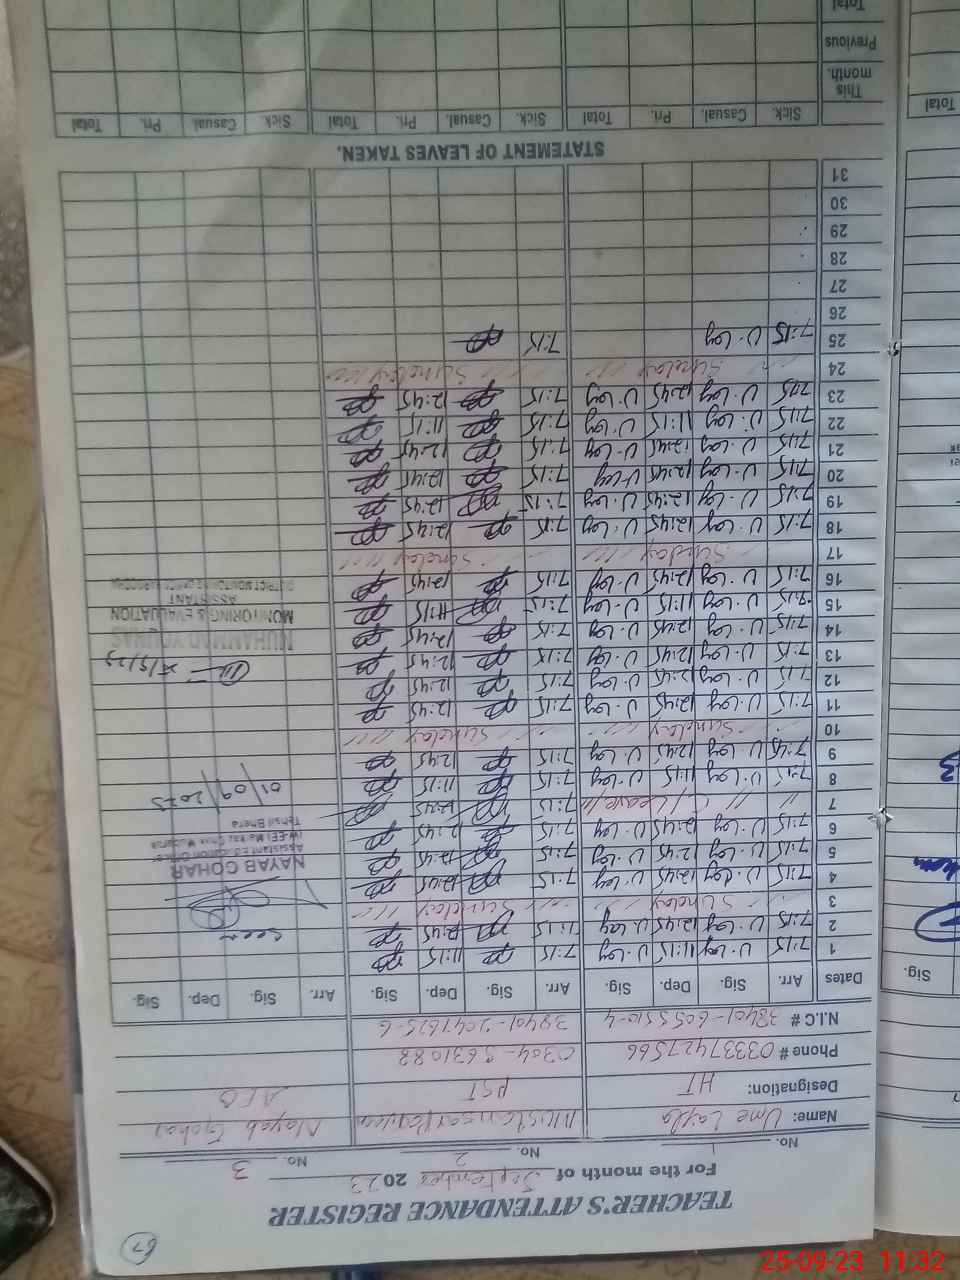 67
TEACHER'S ATTENDANCE REGISTER
For the month of September 2023
No. 1 No. 2 No. 3
Name: Ume Layla Nayab Gohar
Designation: HT PST AEO
Phone # 03337427566 0304-5631088
N.I.C # 38401-6055510-4 38401-2047625-6
Dates Arr. Sig. Dep. Sig. Arr. Sig. Dep. Sig. Arr. Sig. Dep. Sig.
1 7:15 U.Lay 11:15 U.Lay 7:15 11:15
2 7:15 U.Lay 12:45 U.Lay 7:15 12:45 Seen
3 Sunday Sunday
4 7:15 U.Lay 12:45 U.Lay 7:15 12:45
5 7:15 U.Lay 12:45 U.Lay 7:15 12:45 NAYAB GOHAR
Assistant Education Officer
6 7:15 U.Lay 12:45 U.Lay 7:15 12:45
Tehsil Bhera
7 " " C/Leave 7:15 12:45 01/09/2023
8 7:15 U.Lay 11:15 U.Lay 7:15 11:15
9 7:15 U.Lay 12:45 U.Lay 7:15 12:45
10 Sunday Sunday
11 7:15 U.Lay 12:45 U.Lay 7:15 12:45
12 7:15 U.Lay 12:45 U.Lay 7:15 12:45
13 7:15 U.Lay 12:45 U.Lay 7:15 12:45
14 7:15 U.Lay 12:45 U.Lay 7:15 12:45 MUHAMMAD YOUNAS
15 7:15 U.Lay 11:15 U.Lay 7:15 11:15 MONITORING & EVALUATION
ASSISTANT
16 7:15 U.Lay 12:45 U.Lay 7:15 12:45 DISTRICT MONITORING OFFICE SARGODHA
17 Sunday Sunday
18 7:15 U.Lay 12:45 U.Lay 7:15 12:45
19 7:15 U.Lay 12:45 U.Lay 7:15 12:45
20 7:15 U.Lay 12:45 U.Lay 7:15 12:45
21 7:15 U.Lay 12:45 U.Lay 7:15 12:45
22 7:15 U.Lay 11:15 U.Lay 7:15 11:15
23 7:15 U.Lay 12:45 U.Lay 7:15 12:45
24 Sunday Sunday
25 7:15 U.Lay 7:15
26
27
28
29
30
31
STATEMENT OF LEAVES TAKEN.
Sick. Casual. Pri. Total Sick. Casual. Pri. Total Sick Casual. Pri. Total
This month.
Previous
Total
Sig.
Total
25-09-23 11:32